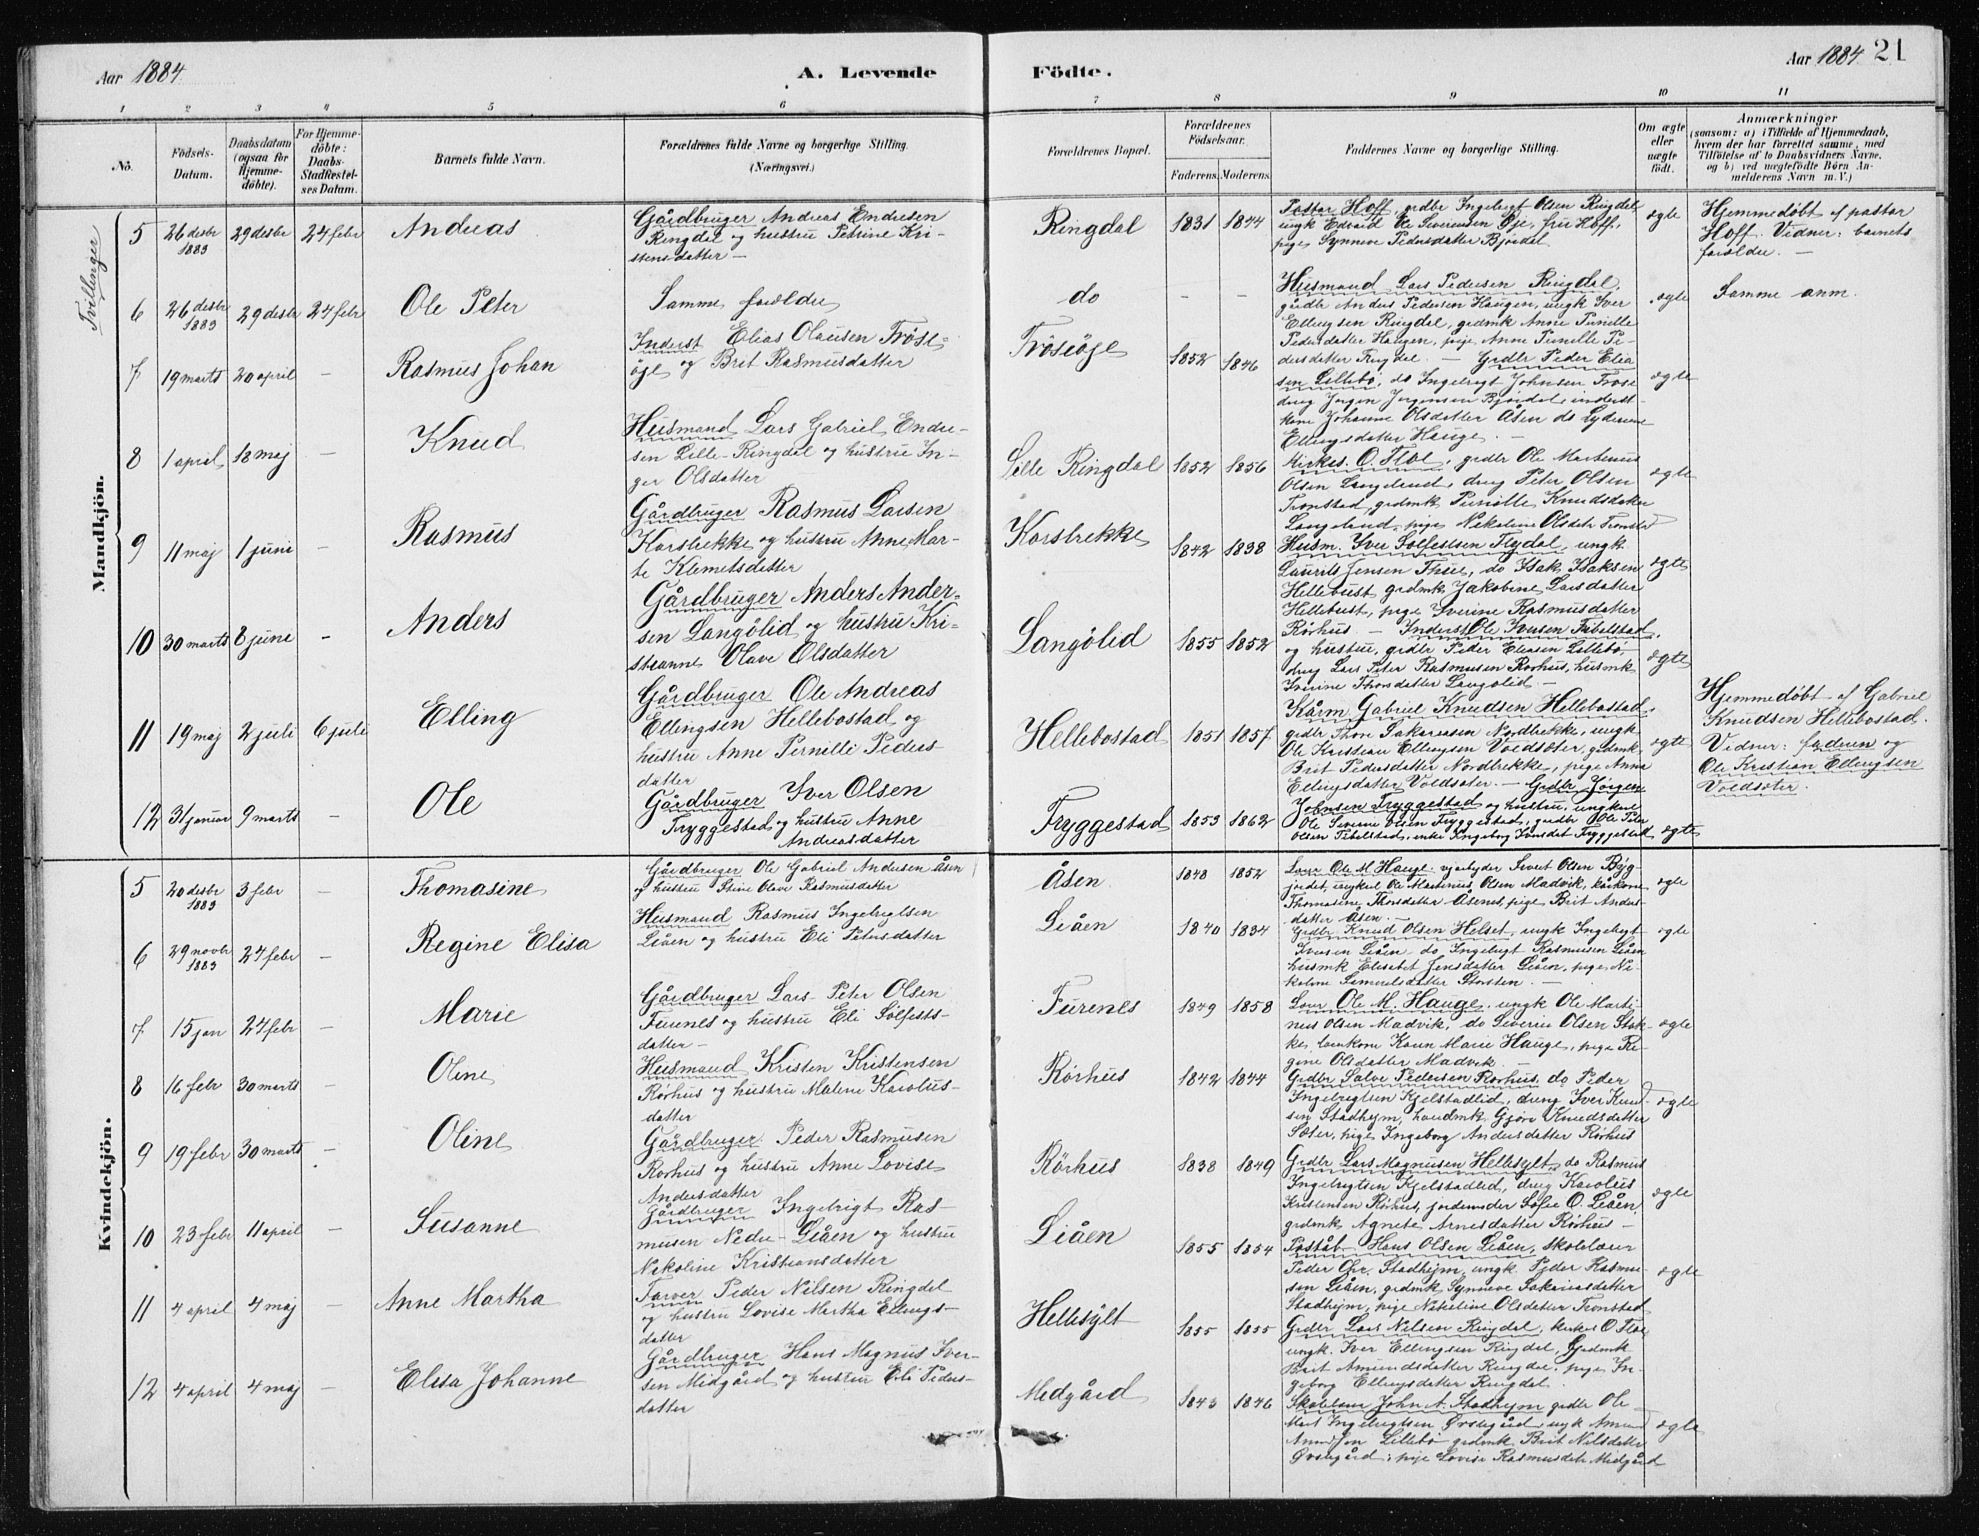 Aar 1884.
A. Levende
Födte.
Aar 1884. 21
1 2 3 4 5 6 7 8 9 10 11
No.
Födsels-Datum.
Daabsdatum (ogsaa for Hjemme-döbte).
For Hjemme-döbte: Daabs-Stadfæstel-ses Datum.
Barnets fulde Navn.
Forældrenes fulde Navne og borgerlige Stilling.
(Næringsvei.)
Forældrenes Bopæl.
Forældrenes Födselsaar.
Faderens. Moderens.
Faddernes Navne og borgerlige Stilling.
Om ægte eller uægte födt.
Anmærkninger
(saasom: a) i Tilfælde af Hjemmedaab,
hvem der har forrettet samme, med
Tilföielse af to Daabsvidners Navne,
og b) ved uægtefödte Börn An-
melderens Navn m. V.)
Mandkjön.
Tvillinger
5 26 desbr 1883 29 desbr 24 febr Andreas
Gårdbruger Andreas Endresen
Ringdal og hustru Petrine Kri-
stensdatter —
Ringdal 1831 1844
Pastor Hoff, grdbr Ingebrigt Olsen Ringdal,
ungk Edvard Ole Severinsen Øje, fru Hoff,
pige Synneve Pedersdatter Bjørdal
ægte
Hjemmedøbt af pastor
Hoff. Vidner: barnets
forældre. —
6 26 desbr 1883 29 desbr 24 febr Ole Peter
Samme forældre
do - -
Husmand Lars Pedersen Ringdal,
gårdbr Anders Pedersen Haugen, ungk Iver
Ellingsen Ringdal, grdmk Anne Pernille
Pedersdatter Haugen, pige Anne Pernille Pe-
dersdatter Ringdal. —
ægte
Samme anm.
7 19 marts 20 april - Rasmus Johan
Inderst Elias Olausen Trøse-
øje og Brit Rasmusdatter
Trøseøje 1852 1846
Grdbr Peder Elia
sen Lillebø, do Ingebrigt Johnsen Trøse
dreng Jørgen Jørgensen Bjørdal, inderst-
kone Johanne Olsdatter Åsen do
Ellingsdatter Hauge. —
ægte
8 1 april 18 maj - Knud
Husmand Lars Gabriel Endre-
sen Lille-Ringdal og hustru In-
ger Olsdatter
Lille Ringdal 1852 1856
Kirkes. O. Tloe, grdbr Ole Martinus
Olsen Langeland, dreng Peter Olsen
Tronstad, grdmk Pernille Knudsdatter
Langeland, pige Nikoline Olsdatr Tronstad
ægte
9 11 maj 1 juni - Rasmus
Gårdbruger Rasmus Larsen
Korsbrekke og hustru Anne Mar-
te Klemetsdatter
Korsbrekke 1842 1838
Husm. Iver Solfestsen Flydal, ungk
Laurits Jensen Thue, do Isak Isaksen
Hellebust grdmk Jakobine Larsdatter
Hellebust, pige Iverine Rasmusdatter
Rørhus —
ægte
10 30 marts 8 juni - Anders
Gårdbruger Anders Ander-
sen Langølid og hustru Kri-
stianne Olave Olsdatter
Langølid 1855 1852
Inderst Ole Iversen Tibelstad,
og hustru, grdbr Peder Eliasen Lillebø,
dreng Lars Peter Rasmusen Rørhus, husmk
Iverine Thorsdatter Langølid —
ægte
11 19 maj 2 juli 6 juli Elling
Gårdbruger Ole Andreas
Ellingsen Hellebostad og
hustru Anne Pernille Peders-
datter
Hellebostad 1851 1857
Kårm Gabriel Knudsen Hellebostad,
grdbr Thore Sakariasen Nordbrekke, ungk
Ole Kristian Ellingsen Voldsæter, grdmk
Brit Pedersdatter Nordbrekke, pige Anna
Ellingsdatter Voldsæter. —
ægte
Hjemmedøbt af Gabriel
Knudsen Hellebostad.
Vidner: faderen og
Ole Kristian Ellingsen
Voldsæter.
12 31 januar 9 marts - Ole
Gårdbruger Iver Olsen
Tryggestad og hustru Anne
Andreasdatter
Tryggestad 1853 1862
Grdbr Jørgen
Johnsen Tryggestad og hustru, ungkarl
Ole Severin Olsen Tryggestad, grdbr Ole Peter
Olsen Tibelstad, enke Ingeborg Iversdat Tryggestad
ægte
Kvindekjön.
5 20 desbr 1883 3 febr - Thomasine
Gårdbruger Ole Gabriel Andersen Åsen
og hustru Stine Olave Rasmusdatter
Åsen 1848 1852
Lærer Ole M. Hauge, Sivert Olsen Byg-
jordet, ungkarl Ole Martinus Olsen Madvik, kårkone
Thomasine Thorsdatter Åsenes, pige Brit Anders-
datter Åsen. —
ægte
6 29 novbr 1883 24 febr - Regine Elisa
Husmand Rasmus Ingebrigtsen
Liåen og hustru Eli Petersdatter
Liåen 1840 1834
Grdbr Knud Olsen Helset, ungk Ingebrigt
Iversen Liåen, do Ingebrigt Rasmusen Liåen
husmk Elisabet Jensdatter Liåen, pige Ni-
koline Samuelsdatter Storsten. —
ægte
7 15 jan 24 febr - Marie
Gårdbruger Lars Peter Olsen
Furenes og hustru Eli Solfests-
datter —
Furenes 1849 1858
Lærer Ole M. Hauge, ungk Ole Marti-
nus Olsen Madvik, do Severin Olsen Stok-
ke, lærerkone Karen Marie Hauge, pige Re-
gine Olsdatter Madvik —
ægte
8 16 febr 30 marts Oline
Husmand Kristen Kristensen
Rørhus og hustru Malene Karolus-
datter
Rørhus 1842 1844
Grdbr Salve Pedersen Rørhus, do Peder
Ingebrigtsen Kjelstadlid, dreng Iver Knud-
sen Stadhejm, Gjøre Knudsdatter
Sæter, pige Ingeborg Andersdatter Rørhus
ægte
9 19 febr 30 marts - Oline
Gårdbruger Peder Rasmusen
Rørhus og hustru Anne Lovise
Andersdatter
Rørhus 1838 1849
Grdbr Lars Magnusen Hellesylt, do Rasmus
Ingebrigtsen Kjelstadlid, dreng Karolus
Kristensen Rørhus, jordemoder Sofie O. Liåen,
grdmk Agnete Arnesdatter Rørhus —
ægte
10 23 febr 11 april - Susanne
Gårdbruger Ingebrigt Ras-
musen Nedre-Liåen og hustru
Nikoline Kristiansdatter
Liåen 1855 1854
Poståb. Hans Olsen Liåen, skolelærer
Peder Chr. Stadhejm, ungk Peder Rasmu-
sen Liåen, grdmk Synneve Sakariasdatter
Stadhejm, pige Nikoline Olsdatter Tronstad
ægte
11 4 april 4 maj - Anne Martha
Farver Peder Nilsen Ringdal
og hustru Lovise Martha Ellings-
datter
Hellesylt 1855 1855
Grdbr Lars Nilsen Ringdal, kirkes O Tloe,
ungk. Iver Ellingsen Ringdal, Grdmk
Brit Amundsdatter Ringdal, pige In-
geborg Ellingsdatter Ringdal.
12 4 april 4 maj - Elisa Johanne
Gårdbruger Hans Magnus Iver-
sen Midgård og hustru Eli Peders-
datter
Midgård 1843 1846
Skolelærer John A. Stadhejm grdbr Ole
Mart Ingebrigtsen Ørstegård, ungk Amund
Lillebø grdmk Brit Nilsdatter
Ørstegård, pige Lovise Rasmusdatr Midgård
ægte